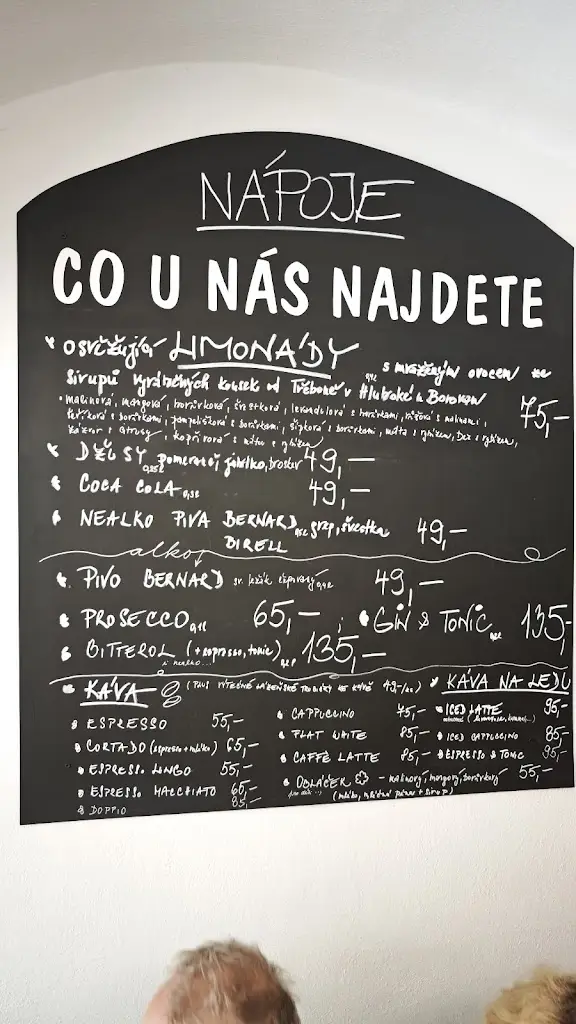 NÁPOJE
CO U NÁS NAJDETE
osvěžující LIMONÁDY s mraženým ovocem ze
sirupů vyráběných kousek od Třeboně v Hluboké u Borovan 75,-
malinová, mangová, borůvková, švestková, levandulová s borůvkami, růžová s malinami,
šeříková s borůvkami, pampelišková s borůvkami, šípková s borůvkami, máta s rybízem, bez s rybízem,
zázvor s citrusy, kopřivová s mátou a rybízem
DŽUSY 0,25l pomeranč, jablko, broskev 49,-
COCA COLA 49,-
NEALKO PIVA BERNARD grep, švestka 49,-
BIRELL
alko
PIVO BERNARD sv. ležák čepovaný 49,-
PROSECCO 0,1l 65,- GIN & TONIC 135,-
BITTEROL (+espresso, tonic) 135,-
i nealko...
KÁVA (PLUS VÝTEČNÉ LÁZEŇSKÉ TRUBIČKY KE KÁVĚ 49,-/ks) KÁVA NA LEDU
ESPRESSO 55,- CAPPUCCINO 75,- ICED LATTE 95,-
CORTADO (espresso + mléko) 65,- FLAT WHITE 85,- ICED CAPPUCCINO 85,-
ESPRESSO LUNGO 55,- CAFFÈ LATTE 85,- ESPRESSO & TONIC 95,-
ESPRESSO MACCHIATO 60,- OBLÁČEK - malinový, mangový, borůvkový 55,-
DOPPIO 85,- pro děti (mléko, mléčná pěna + sirup)